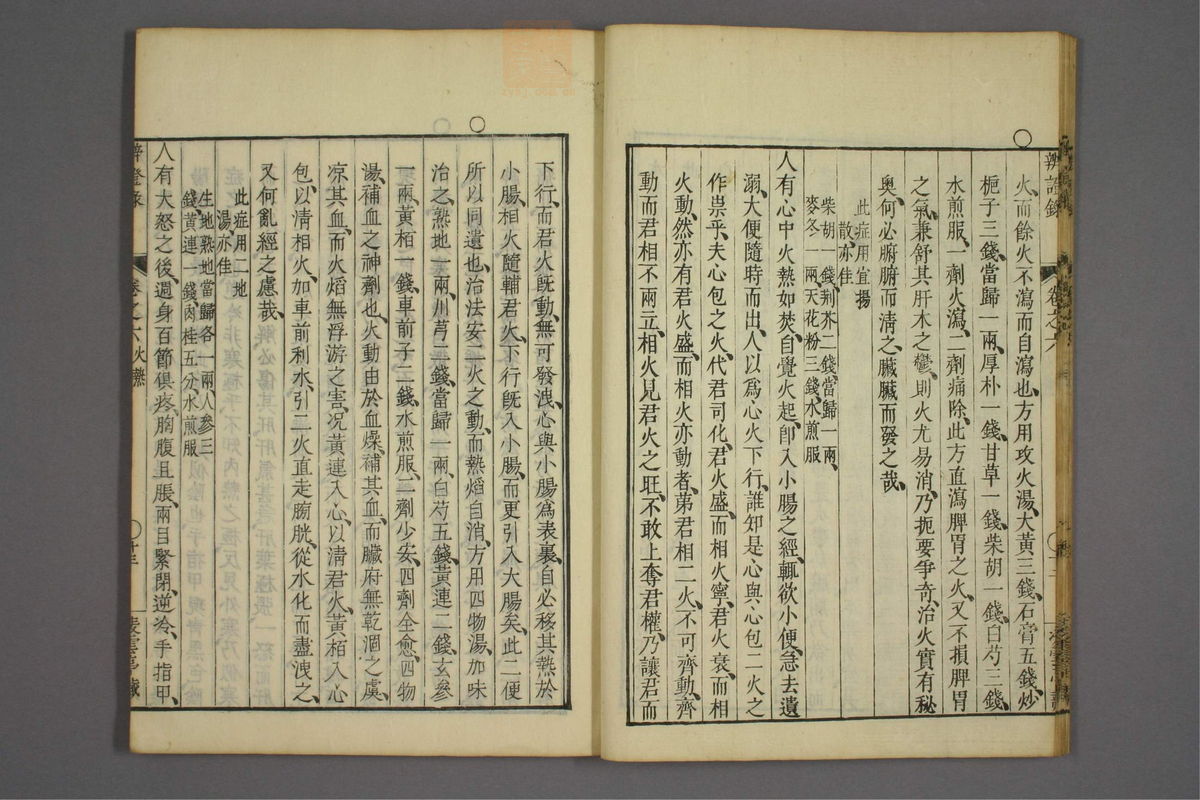 火、而餘火不瀉而自瀉也、方用攻火湯、大黃三錢、石膏五錢、炒
梔子三錢、當歸一兩、厚朴一錢、甘草一錢、柴胡一錢、白芍三錢、
水煎服、一劑火瀉、二劑痛除、此方直瀉脾胃之火、又不損脾胃
之氣、兼舒其肝木之鬱、則火尤易消、乃扼要爭奇、治火實有秘
奧、何必腑腑而清之、臟臟而發之哉、
此症用宜揚
散亦佳
柴胡一錢荆芥二錢、當歸一兩、
麥冬一兩天花粉三錢、水煎服
人有心中火熱如焚、自覺火起、卽入小腸之經、輒欲小便、急去遺
溺、大便隨時而出、人以爲心火下行、誰知是心與心包二火之
作祟乎、夫心包之火、代君司化、君火盛、而相火寧、君火衰、而相
火動、然亦有君火盛、而相火亦動者、第君相二火、不可齊動、齊
動而君相不兩立、相火見君火之旺、不敢上奪君權、乃讓君而
下行、而君火旣動、無可發洩、心與小腸爲表裏、自必移其熱於
小腸、相火隨輔君火、下行旣入小腸、而更引入大腸矣、此二便
所以同遺也、治法安二火之動、而熱焰自消、方用四物湯、加味
治之、熟地一兩、川芎二錢、當歸一兩、白芍五錢、黃連二錢、玄參
一兩、黃栢一錢、車前子二錢、水煎服、二劑少安、四劑全愈、四物
湯、補血之神劑也、火動由於血燥、補其血、而臟府無乾涸之虞、
凉其血、而火焰無浮游之害、况黃連入心、以清君火、黃栢入心
包、以清相火、加車前利水、引二火直走膀胱、從水化而盡洩之、
又何亂經之慮哉、
此症用二地
湯亦佳
生地熟地當歸各一兩人參三
錢黃連一錢肉桂五分水煎服
人有大怒之後、週身百節俱疼、胸腹且脹、兩目緊閉、逆冷、手指甲、
辨證錄
卷之六火𤍠